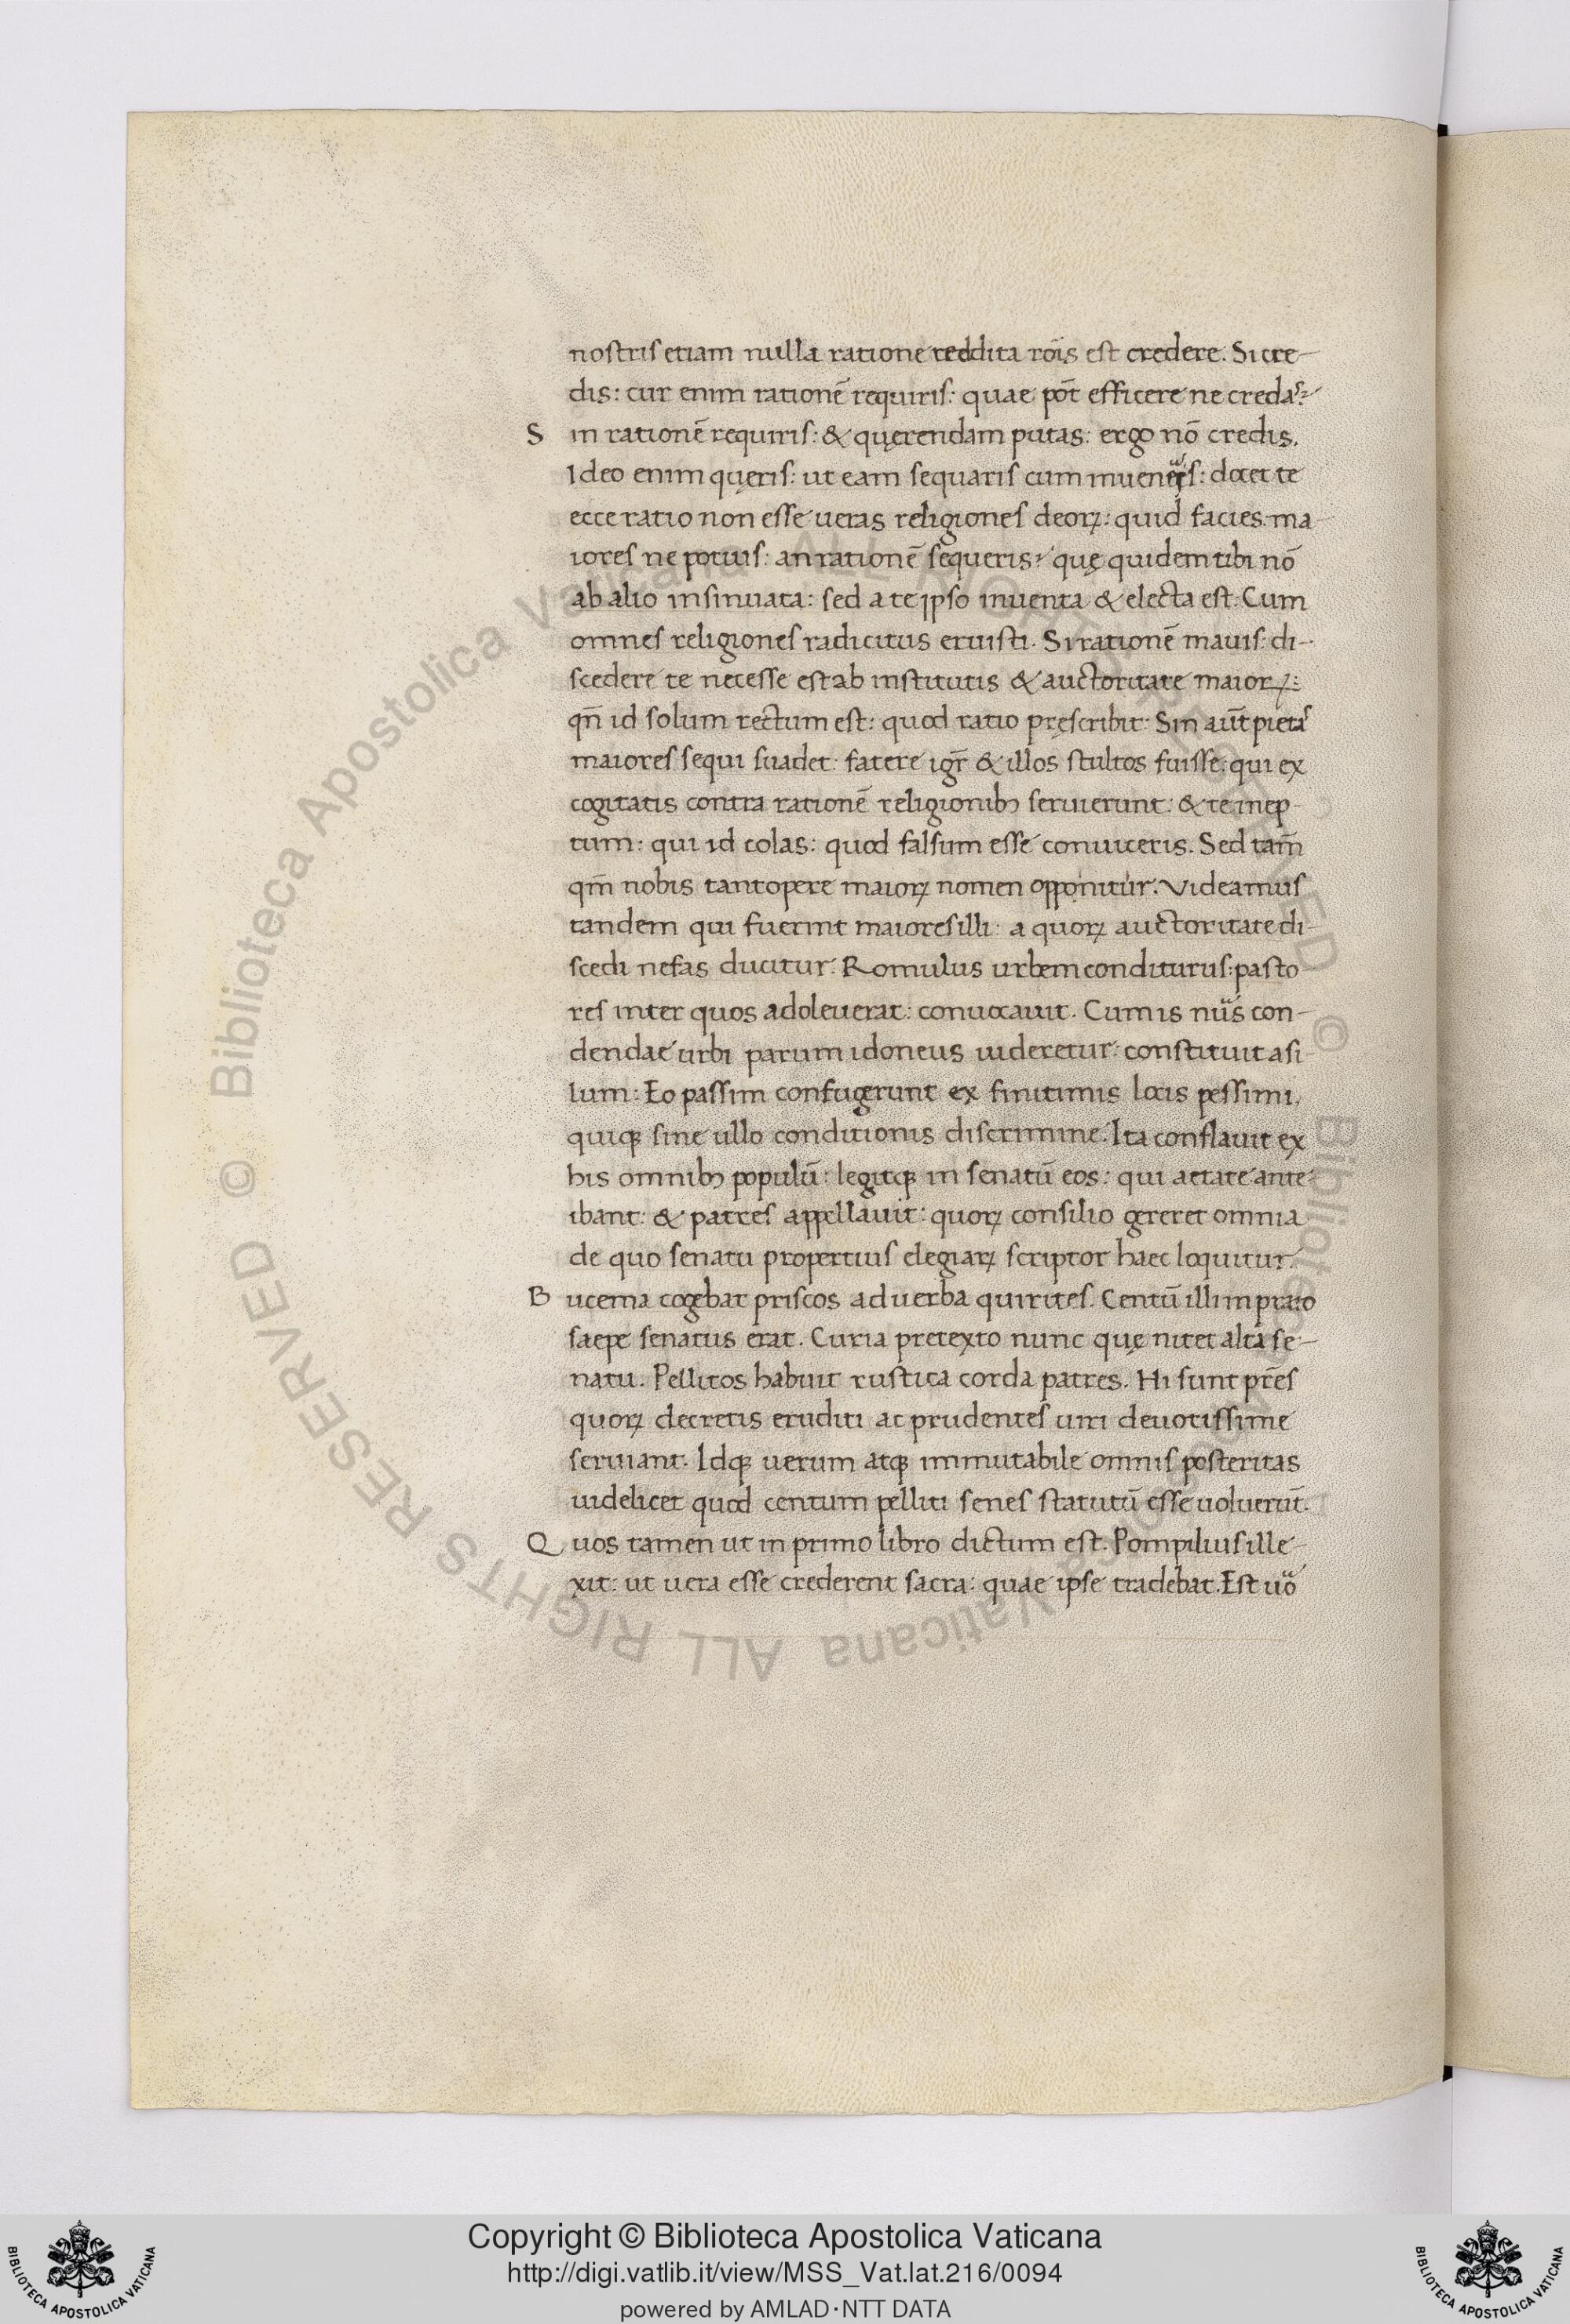 nostris etiam nulla ratione reddita rõis est credere. Si cre-
dis: cur enim rationẽ requiris: quae põt efficere ne credas?
S in rationẽ requiris: & quęrendam putas: ergo nõ credis.
Ideo enim quęris: ut eam sequaris cum : docet te
ecce ratio non esse ueras religiones deoꝝ: quid facies. ma-
iores ne potuis: an rationẽ sequeris? quę quidem tibi nõ
ab alio insinuata: sed a te ipso inuenta & electa est. Cum
omnes religiones radicitus eruisti. Si rationẽ mauis: di-
scedere te necesse est ab institutis & auctoritate maioꝝ:
qñ id solum rectum est: quod ratio pręscribit: Sin aũt pietas
maiores sequi suadet: fatere igr̃ & illos stultos fuisse: qui ex
cogitatis contra rationẽ religionibꝫ seruierunt: & te inep-
tum: qui id colas: quod falsum esse conuiceris. Sed tam̃
qm̃ nobis tantopere maioꝝ nomen opponitur. Videamus
tandem qui fuerint maiores illi: a quoꝝ auctoritate di-
scedi nefas ducitur. Romulus urbem conditurus: pasto-
res inter quos adoleuerat: conuocauit. Cum is nũs con-
dendae urbi parum idoneus uideretur: constituit asi-
lum: Eo passim confugerunt ex finitimis locis pessimi,
quiqꝫ sine ullo conditionis discrimine. Ita conflauit ex
his omnibꝫ populũ: legitqꝫ in senatũ eos: qui aetate ante-
ibant: & patres appellauit: quoꝝ consilio gereret omnia
de quo senatu propertius elegiaꝝ scriptor haec loquitur.
B ucema cogebat priscos ad uerba quirites. Centũ illi in prato
saepe senatus erat. Curia pretexto nunc quę nitet alta se-
natu. Pellitos habuit rustica corda patres. Hi sunt pr̃es
quoꝝ decretis eruditi ac prudentes uiri deuotissime
seruiant. Idqꝫ uerum atqꝫ immutabile omnis posteritas
uidelicet quod centum pelliti senes statutũ esse uoluerũt.
Q uos tamen ut in primo libro dictum est. Pompilius ille-
xit: ut uera esse crederent sacra: quae ipse tradebat. Est uõ
© Biblioteca Apostolica Vaticana ALL RIGHTS RESERVED © Biblioteca Apostolica Vaticana ALL RIGHTS RESERVED
Copyright © Biblioteca Apostolica Vaticana
http://digi.vatlib.it/view/MSS_Vat.lat.216/0094
powered by AMLAD·NTT DATA
BIBLIOTECA APOSTOLICA VATICANA
BIBLIOTECA APOSTOLICA VATICANA